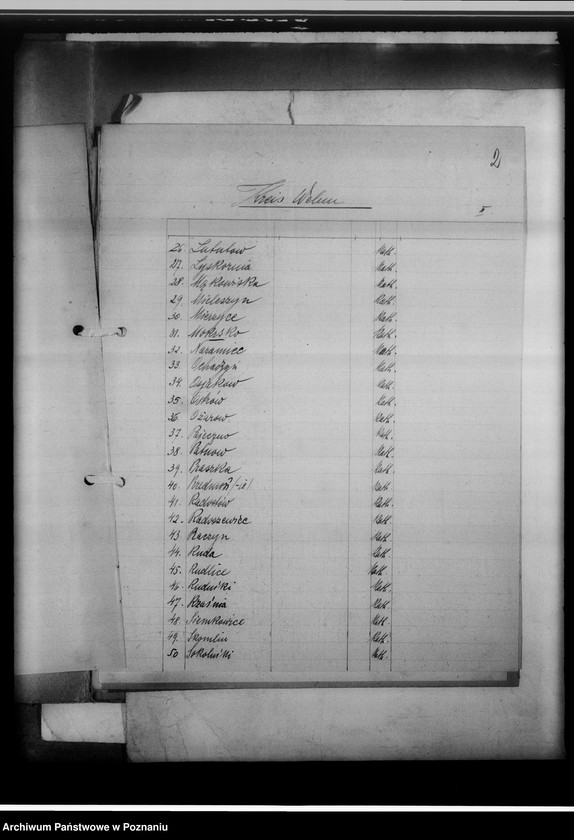 2
Kreis Welun
5
26. Lututow Kath.
27. Lyskornia Kath.
28. Mąkowiska Kath.
29. Mieleszyn Kath.
30 Mierzyce Kath.
31. Mokrsko Kath.
32. Naramice Kath.
33. Kath.
34. Osjaków Kath.
35. Ostrów Kath.
36. Ożarow Kath.
37. Pajeczno Kath.
38. Patnow Kath.
39. Praszka Kath.
40. Kath.
41. Radostów Kath.
42. Radoszewice Kath.
43 Raczyn Kath.
44. Ruda Kath.
45. Rudlice Kath.
46. Kath.
47. Rząśnia Kath.
48. Siemkowice Kath.
49. Skomlin Kath.
50 Sokolniki Kath.
Archiwum Państwowe w Poznaniu